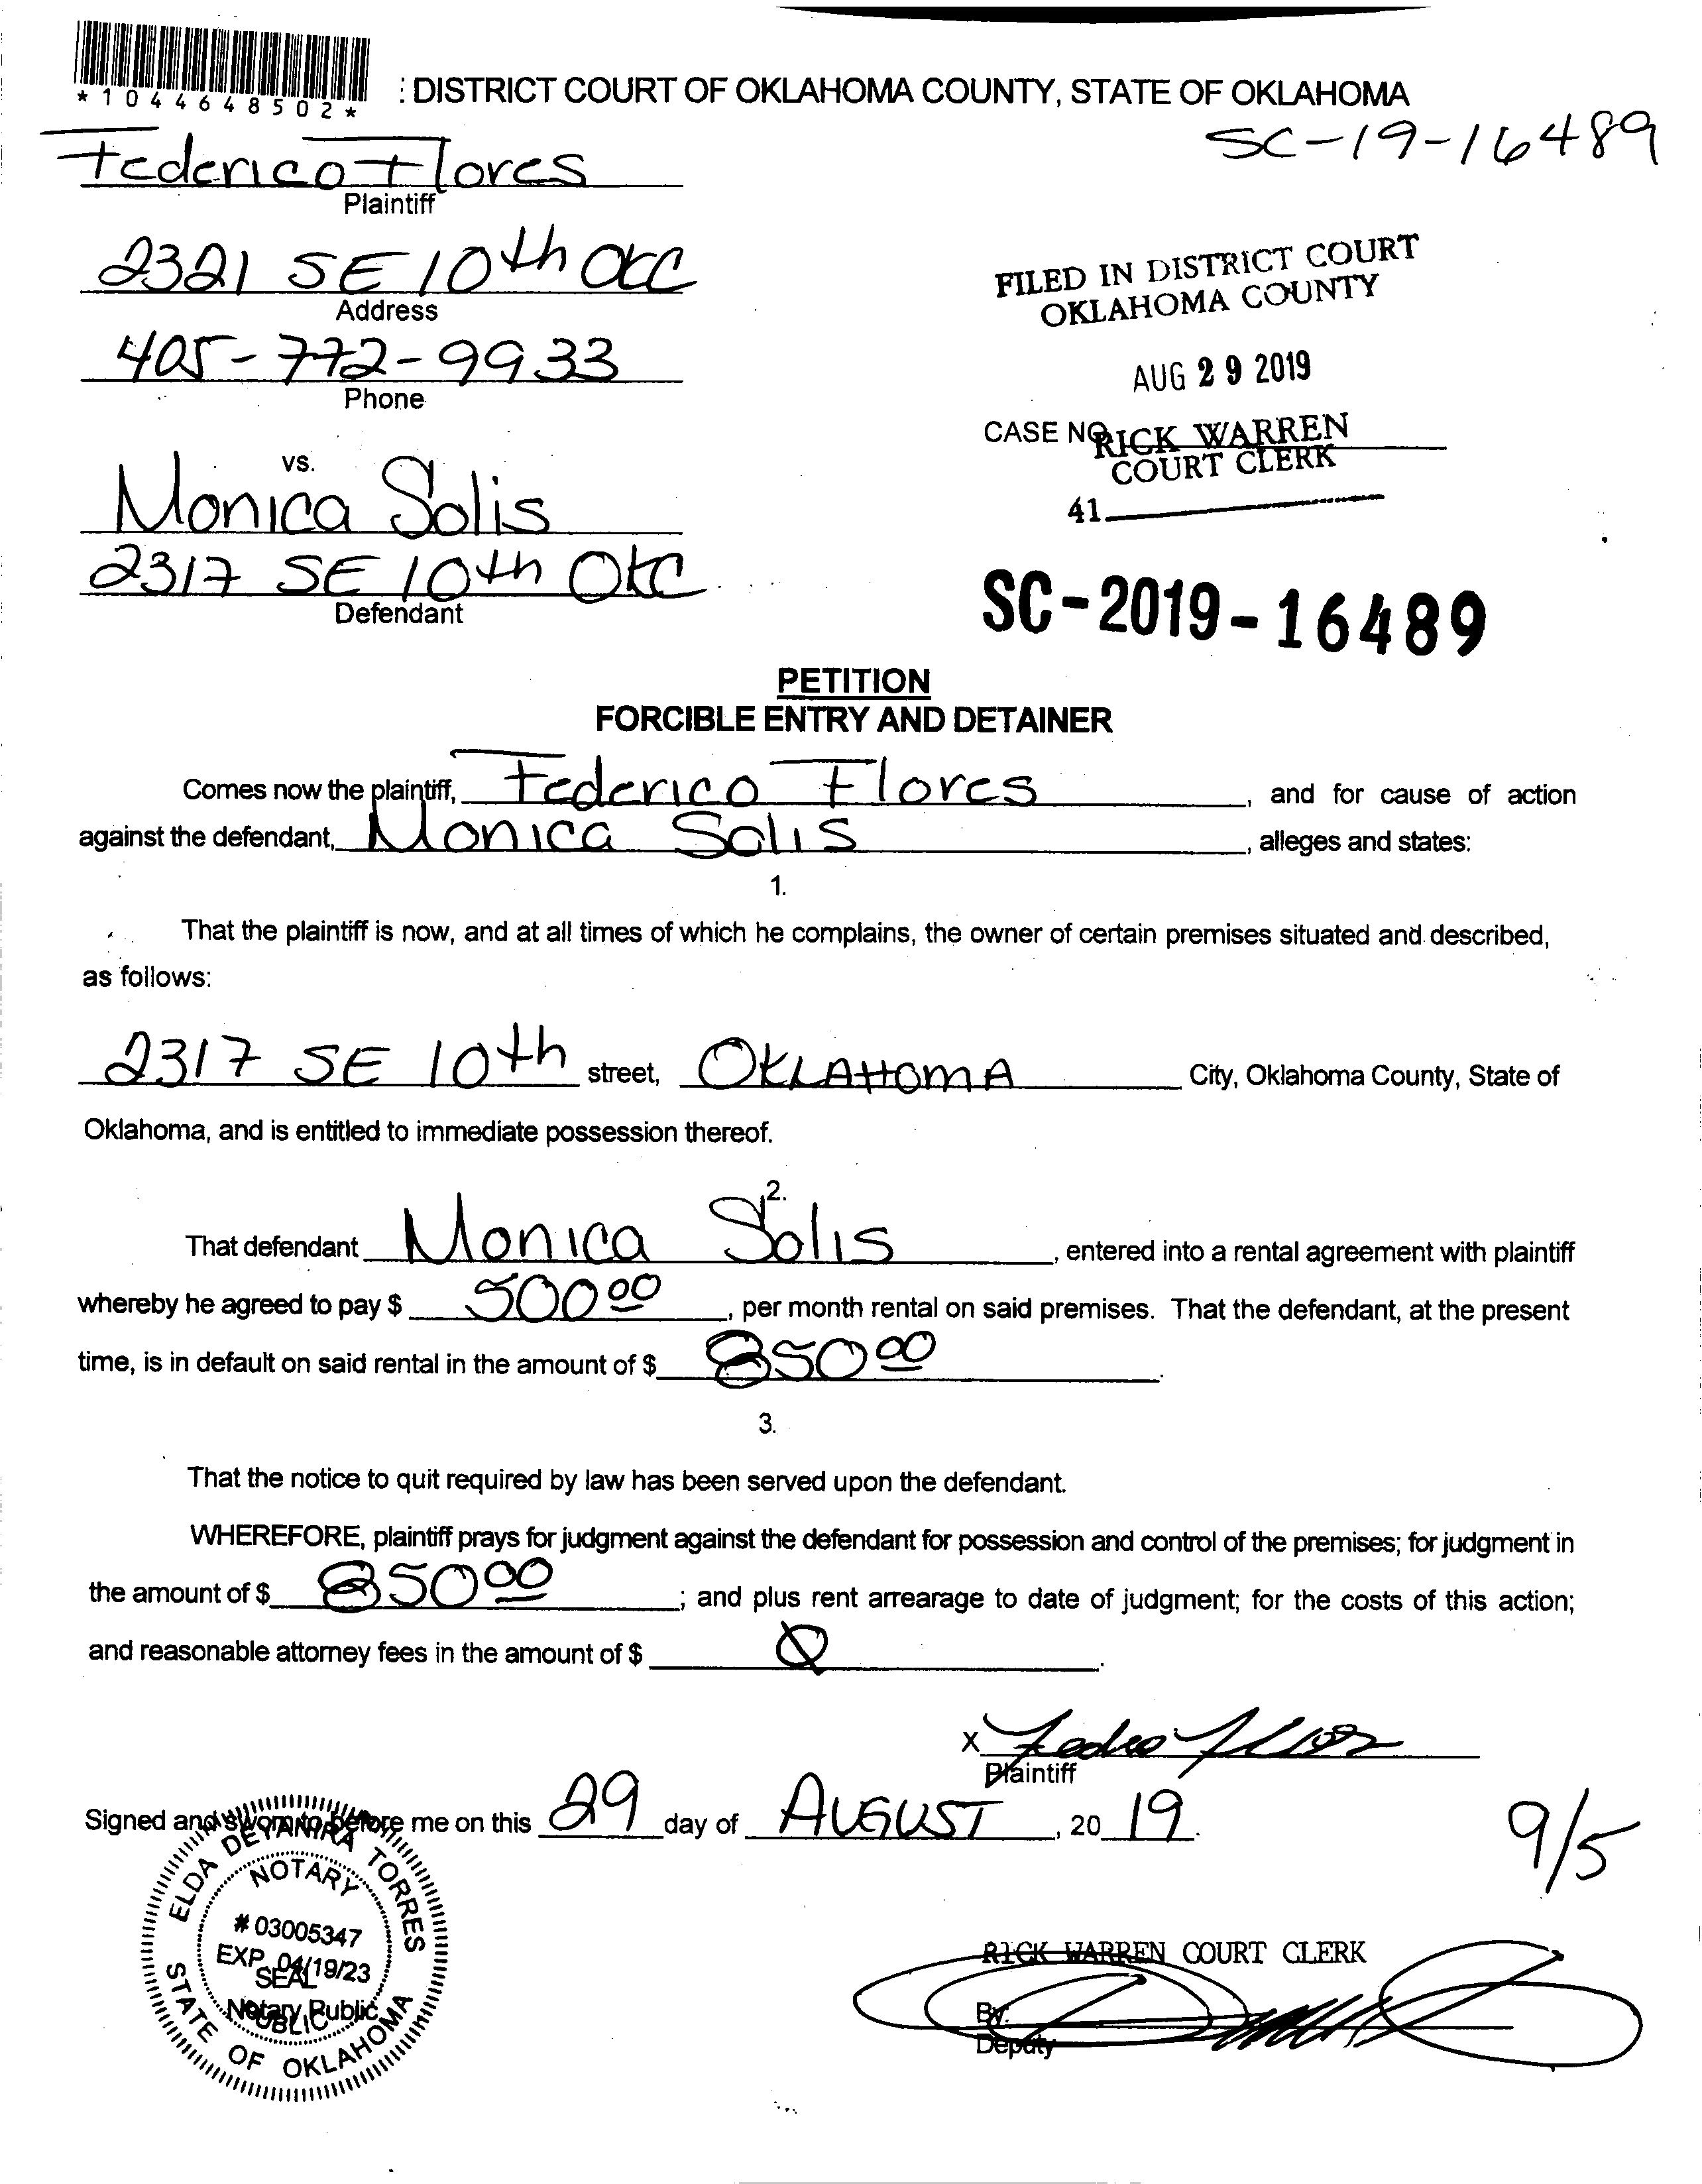 *1044648502*
: DISTRICT COURT OF OKLAHOMA COUNTY, STATE OF OKLAHOMA
SC-19-16489
Federico Flores
Plaintiff
2321 SE 10th OKC
Address
405-772-9933
Phone
FILED IN DISTRICT COURT
OKLAHOMA COUNTY
AUG 29 2019
CASE NO.
RICK WARREN
COURT CLERK
41
vs.
Monica Solis
2317 SE 10th OKC
Defendant
SC-2019-16489
PETITION
FORCIBLE ENTRY AND DETAINER
Comes now the plaintiff, Federico Flores, and for cause of action
against the defendant, Monica Solis, alleges and states:
1.
That the plaintiff is now, and at all times of which he complains, the owner of certain premises situated and described,
as follows:
2317 SE 10th street, OKLAHOMA City, Oklahoma County, State of
Oklahoma, and is entitled to immediate possession thereof.
2.
That defendant Monica Solis, entered into a rental agreement with plaintiff
whereby he agreed to pay $ 500 00, per month rental on said premises. That the defendant, at the present
time, is in default on said rental in the amount of $ 850 00.
3.
That the notice to quit required by law has been served upon the defendant.
WHEREFORE, plaintiff prays for judgment against the defendant for possession and control of the premises; for judgment in
the amount of $ 850 00; and plus rent arrearage to date of judgment; for the costs of this action;
and reasonable attorney fees in the amount of $ 0.
X
Plaintiff
Signed and sworn to before me on this 29 day of AUGUST, 2019.
9/5
ELDA DEYANIRA TORRES
NOTARY
# 03005347
EXP. 04/19/23
SEAL
Notary Public
PUBLIC
STATE OF OKLAHOMA
RICK WARREN COURT CLERK
By:
Deputy